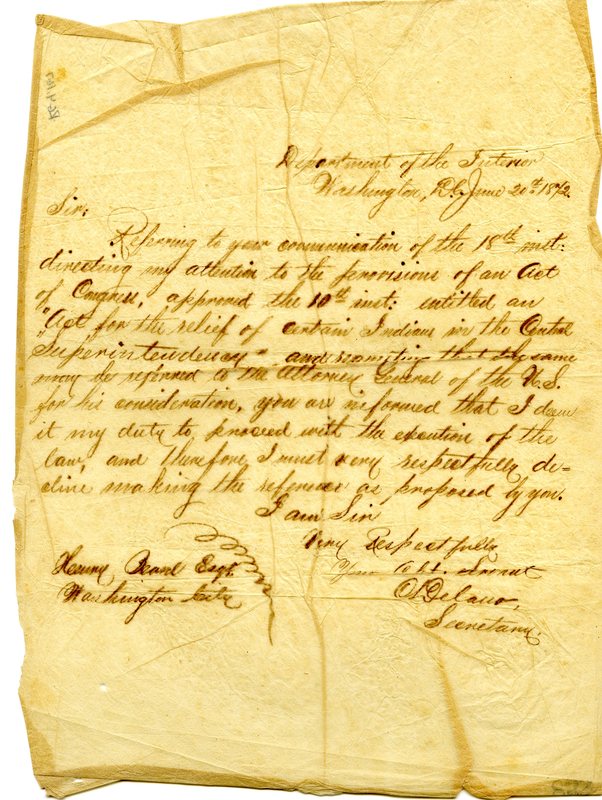 Department of the Interior
Washington, D.C. June 20th 1872.
Sir:
Referring to your communication of the 18th inst:
directing my attention to the provisions of an Act
of Congress, approved the 10th inst: entitled an
"Act for the relief of certain Indians in the Central
Superintendency" and requesting that the same
may be referred to the Attorney General of the U.S.
for his consideration, you are informed that I deem
it my duty to proceed with the execution of the
law, and therefore I must very respectfully de=
cline making the reference as proposed by you.
I am Sir
Very Respectfully
Your Obt. Servnt
C. Delano,
Secretary.
Henry Beard Esqr.
Washington City